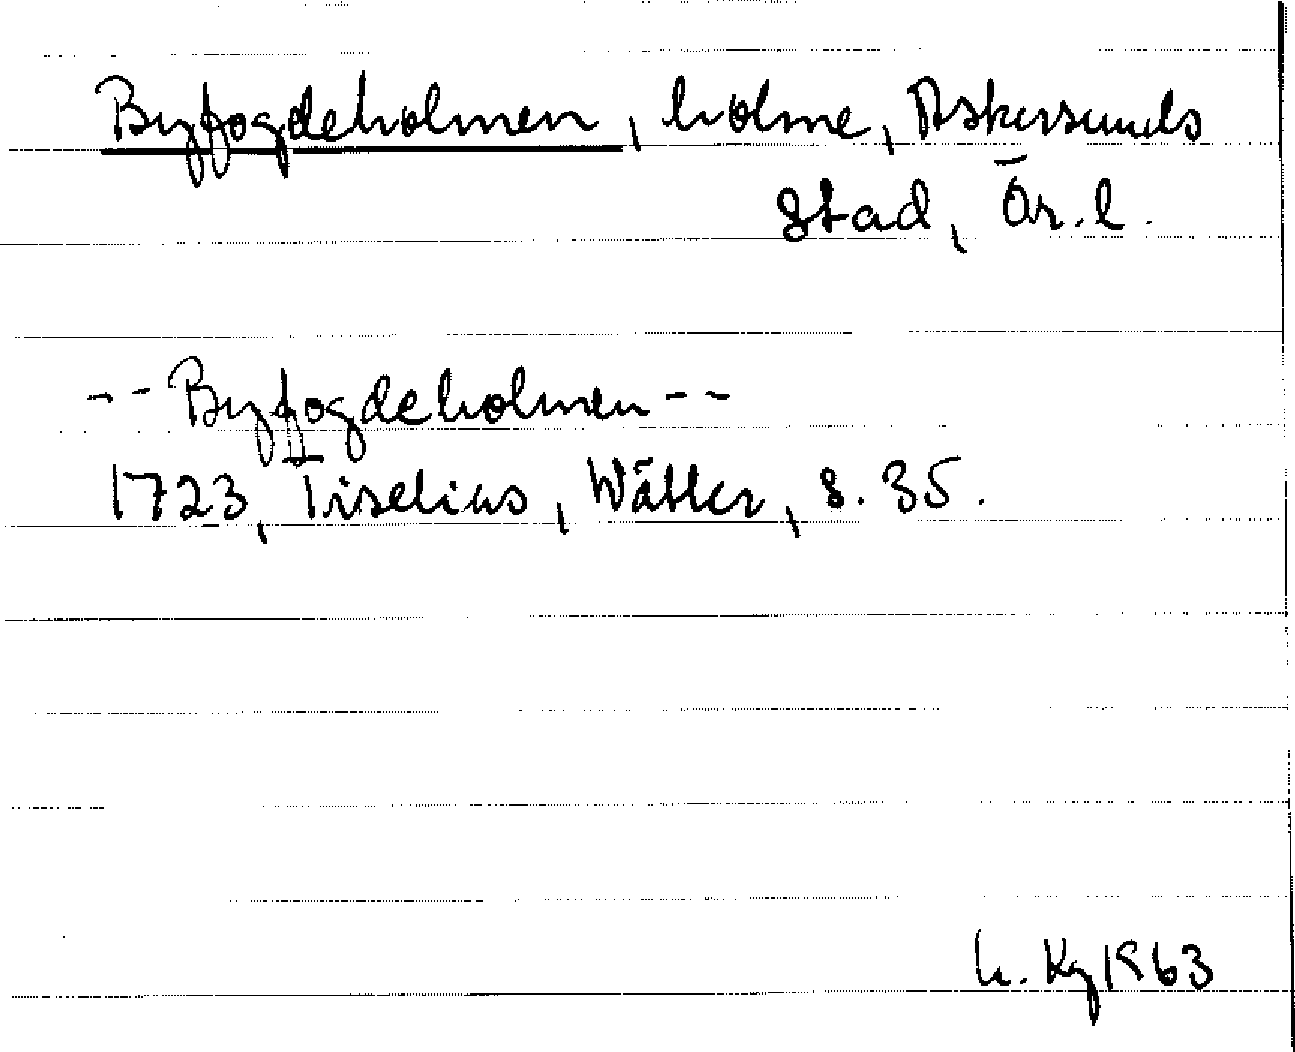 Byfogdeholmen, holme, Askersunds
stad, Ör.l.
-- Byfogdeholmen --
1723, Tiselius, Wätter, s. 35.
h. Kg 1963